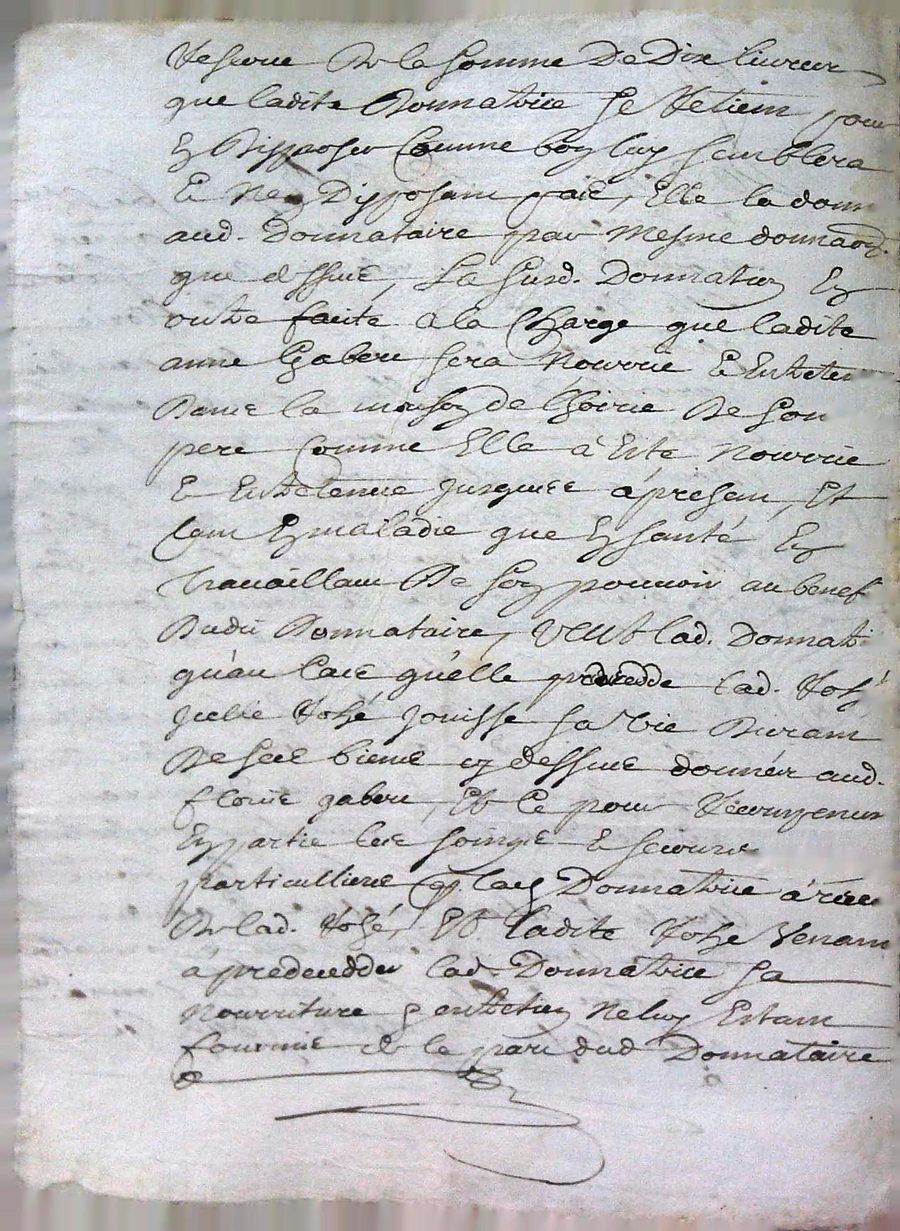 Reserve de la somme De Dix livres
que ladite Donnatrice se Retient pour
En Disposer Comme bon luy semblera
Et Nen Disposant pas, Elle la donn
aud. Donnataire par mesme donnaon
que dessus, La susd. Donnation En
outre faite a la Charge que ladite
anne gabere sera Nourrie Et Entreten
Dans la maison de Lhoirie De son
pere Comme Elle à Esté Nourrie
Et Entretenue jusques à presan, Et
tant En maladie que En santé En
travaillant De son pouvoir au benef
Dudit Donnataire, VEUT lad. Donnat
qu'au Cas qu'elle predecedde lad.
jouisse sa vie Durant
De ses biens cy dessus donnés aud.
gabere, Et Ce pour Recompense
En partie les soings Et secours
particulliers que lad Donnatrice à receu
De lad. Et ladite Venant
à predecedder lad. Donnatrice sa
Nourriture Et entretien Ne luy Estant
fournie de la part dud Donnataire